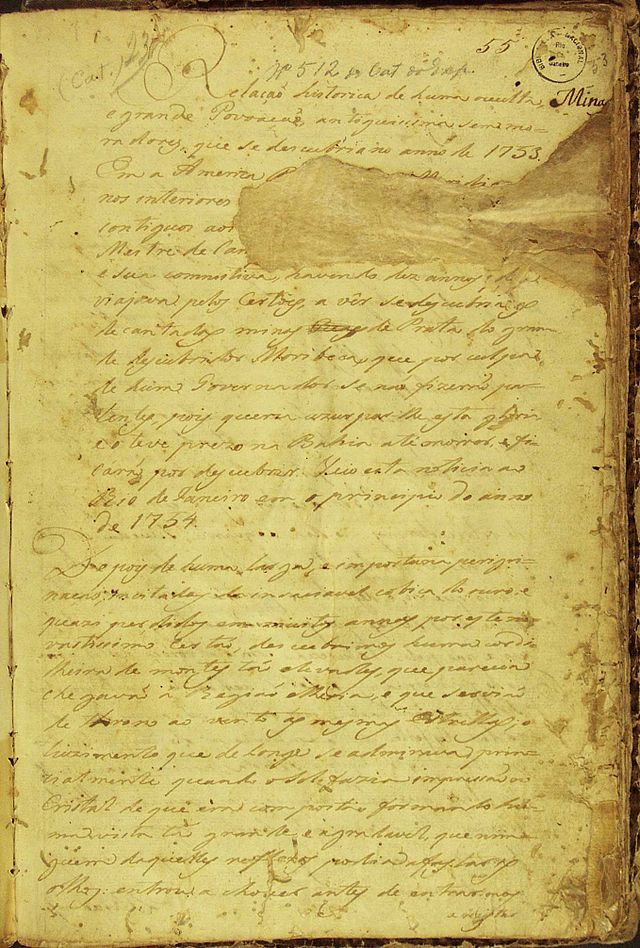 55
(Cat. 123
Nº 512 do Cat do Exp.
BIBLIOTHECA NACIONAL
Rio
de
Janeiro
Relação historica de huma occulta,
Mina
e grande Povoação antiquissima sem mo-
radores, que se descubrio no anno de 1753.
Em a America
nos interiores
contiguos aos
Mestre de Can
e sua commitiva, havendo dez annos, que
viajava pelos Certoes, a vêr se descubria as
decantadas minas de Prata do gran-
de descubridor Moribeca, que por culpa
de hum Governador se não fizerão pa-
tentes, pois queria uzurparlhe esta gloria
e o teve prezo na Bahia até morrer, e fi-
carão por descubrir. Veio esta noticia ao
Rio de Janeiro em o principio do anno
de 1754.
Depois de huma larga, e importuna perigri-
nação, incitados da insaciavel cobiça do ouro, e
quazi perdidos em muitos annos por este
vastissimo Certão, descubrimos huma cordi-
lheira de montes tão elevados, que parecia
chegavão á Região etheria, e que servião
de throno ao vento, ás mesmas Estrellas; o
luzimento que de longe se admirava, prin-
cipalmente quando o Sol fazia impressão ao
Cristal de que era composta, formando hu-
ma vista tão grande, e agradavel, que nin-
guem daquelles reflexos podia afastar os
olhos: entrou a chover antes de entrarmos
a registar